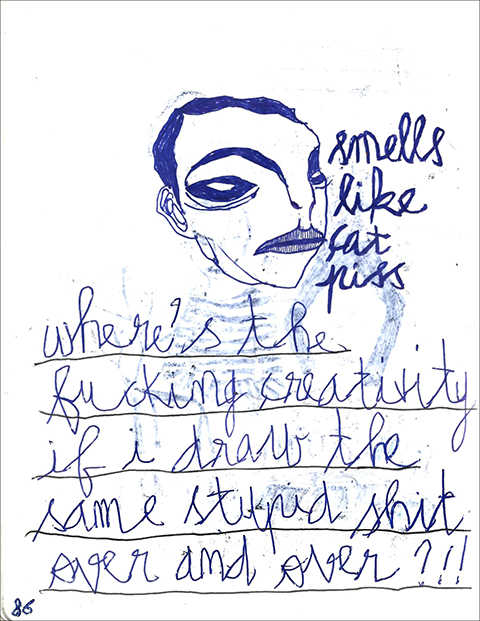 smells
like
cat
piss
where's the
fucking creativity
if i draw the
same stupid shit
over and over?!!
86